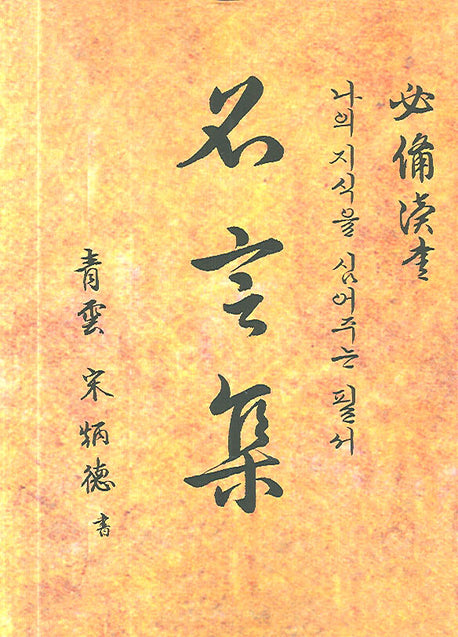 必備
나의 지식을 심어주는 필서
名言集
青雲 宋炳德 書